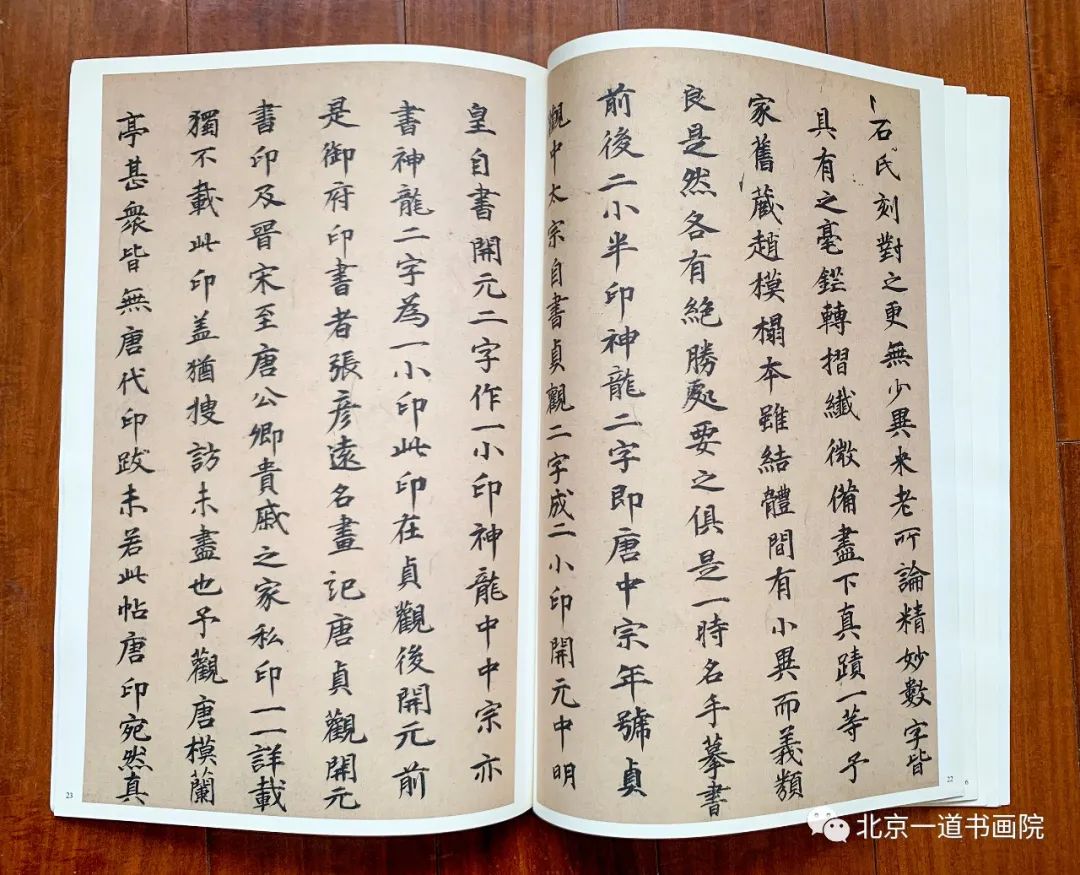 石氏刻對之更無少異米老所論精妙數字皆
具有之毫鋩轉摺纖微備盡下真蹟一等予
家舊藏趙模榻本雖結體間有小異而義類
良是然各有絕勝處要之俱是一時名手摹書
前後二小半印神龍二字即唐中宗年號貞
觀中太宗自書貞觀二字成二小印開元中明
皇自書開元二字作一小印神龍中中宗亦
書神龍二字為一小印此印在貞觀後開元前
是御府印書者張彥遠名畫記唐貞觀開元
書印及晉宋至唐公卿貴戚之家私印一一詳載
獨不載此印盖猶搜訪未盡也予觀唐模蘭
亭甚衆皆無唐代印跋未若此帖唐印宛然真
22
6
23
北京一道书画院